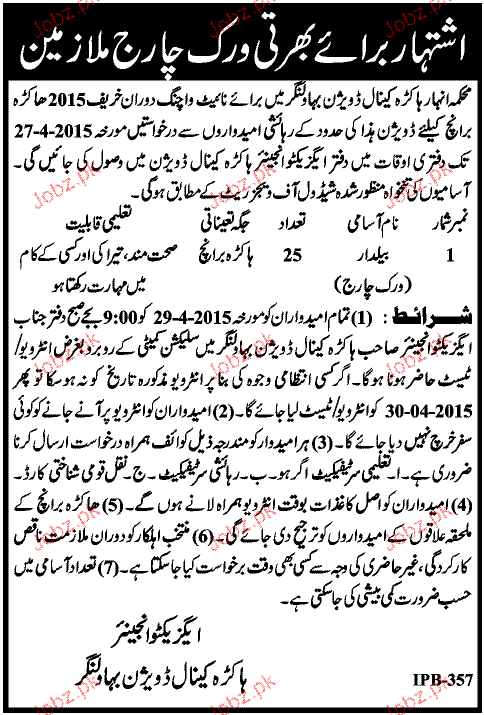 اشتہار برائے بھرتی ورک چارج ملازمین
محکمہ انہار ہاکڑہ کینال ڈویژن بہاولنگر میں برائے نائیٹ واچنگ دوران خریف 2015 ھاکڑہ
برانچ کیلئے ڈویژن ہذا کی حدود کے رہائشی امیدواروں سے درخواستیں مورخہ 27-4-2015
تک دفتری اوقات میں دفتر ایگزیکٹو انجینئر ہاکڑہ کینال ڈویژن میں وصول کی جائیں گی۔
آسامیوں کی تنخواہ منظور شدہ شیڈول آف ویجز ریٹ کے مطابق ہوگی۔
نمبر شمار نام آسامی تعداد جگہ تعیناتی تعلیمی قابلیت
1 بیلدار 25 ہاکڑہ برانچ صحت مند، تیراکی اور کسی کے کام
(ورک چارج) میں مہارت رکھتا ہو
شرائط : (1) تمام امیدواران کو مورخہ 29-4-2015 کو 9:00 بجے صبح دفتر جناب
ایگزیکٹو انجینئر صاحب ہاکڑہ کینال ڈویژن بہاولنگر میں سلیکشن کمیٹی کے روبرو بغرض انٹرویو/
ٹیسٹ حاضر ہونا ہوگا۔ اگر کسی انتظامی وجوہ کی بنا پر انٹرویو مذکورہ تاریخ کو نہ ہو سکا تو پھر
30-04-2015 کو انٹرویو/ ٹیسٹ لیا جائے گا۔ (2) امیدواران کو انٹرویو پر آنے جانے کو کوئی
سفر خرچ نہیں دیا جائے گا۔ (3) ہر امیدوار کو مندرجہ ذیل کوائف ہمراہ درخواست ارسال کرنا
ضروری ہے۔ ا۔ تعلیمی سرٹیفکیٹ اگر ہو۔ ب۔ رہائشی سرٹیفکیٹ۔ ج۔ نقل قومی شناختی کارڈ۔
(4) امیدواران کو اصل کاغذات بوقت انٹرویو ہمراہ لانے ہوں گے۔ (5) ھاکڑہ برانچ کے
ملحقہ علاقوں کے امیدواروں کو ترجیح دی جائے گی۔ (6) منتخب اہلکار کو دوران ملازمت ناقص
کارکردگی، غیر حاضری کی وجہ سے کسی بھی وقت برخواست کیا جا سکتا ہے۔ (7) تعداد آسامی میں
حسب ضرورت کمی بیشی کی جا سکتی ہے۔
ایگزیکٹو انجینئر
ہاکڑہ کینال ڈویژن بہاولنگر
IPB-357
Jobz.pk